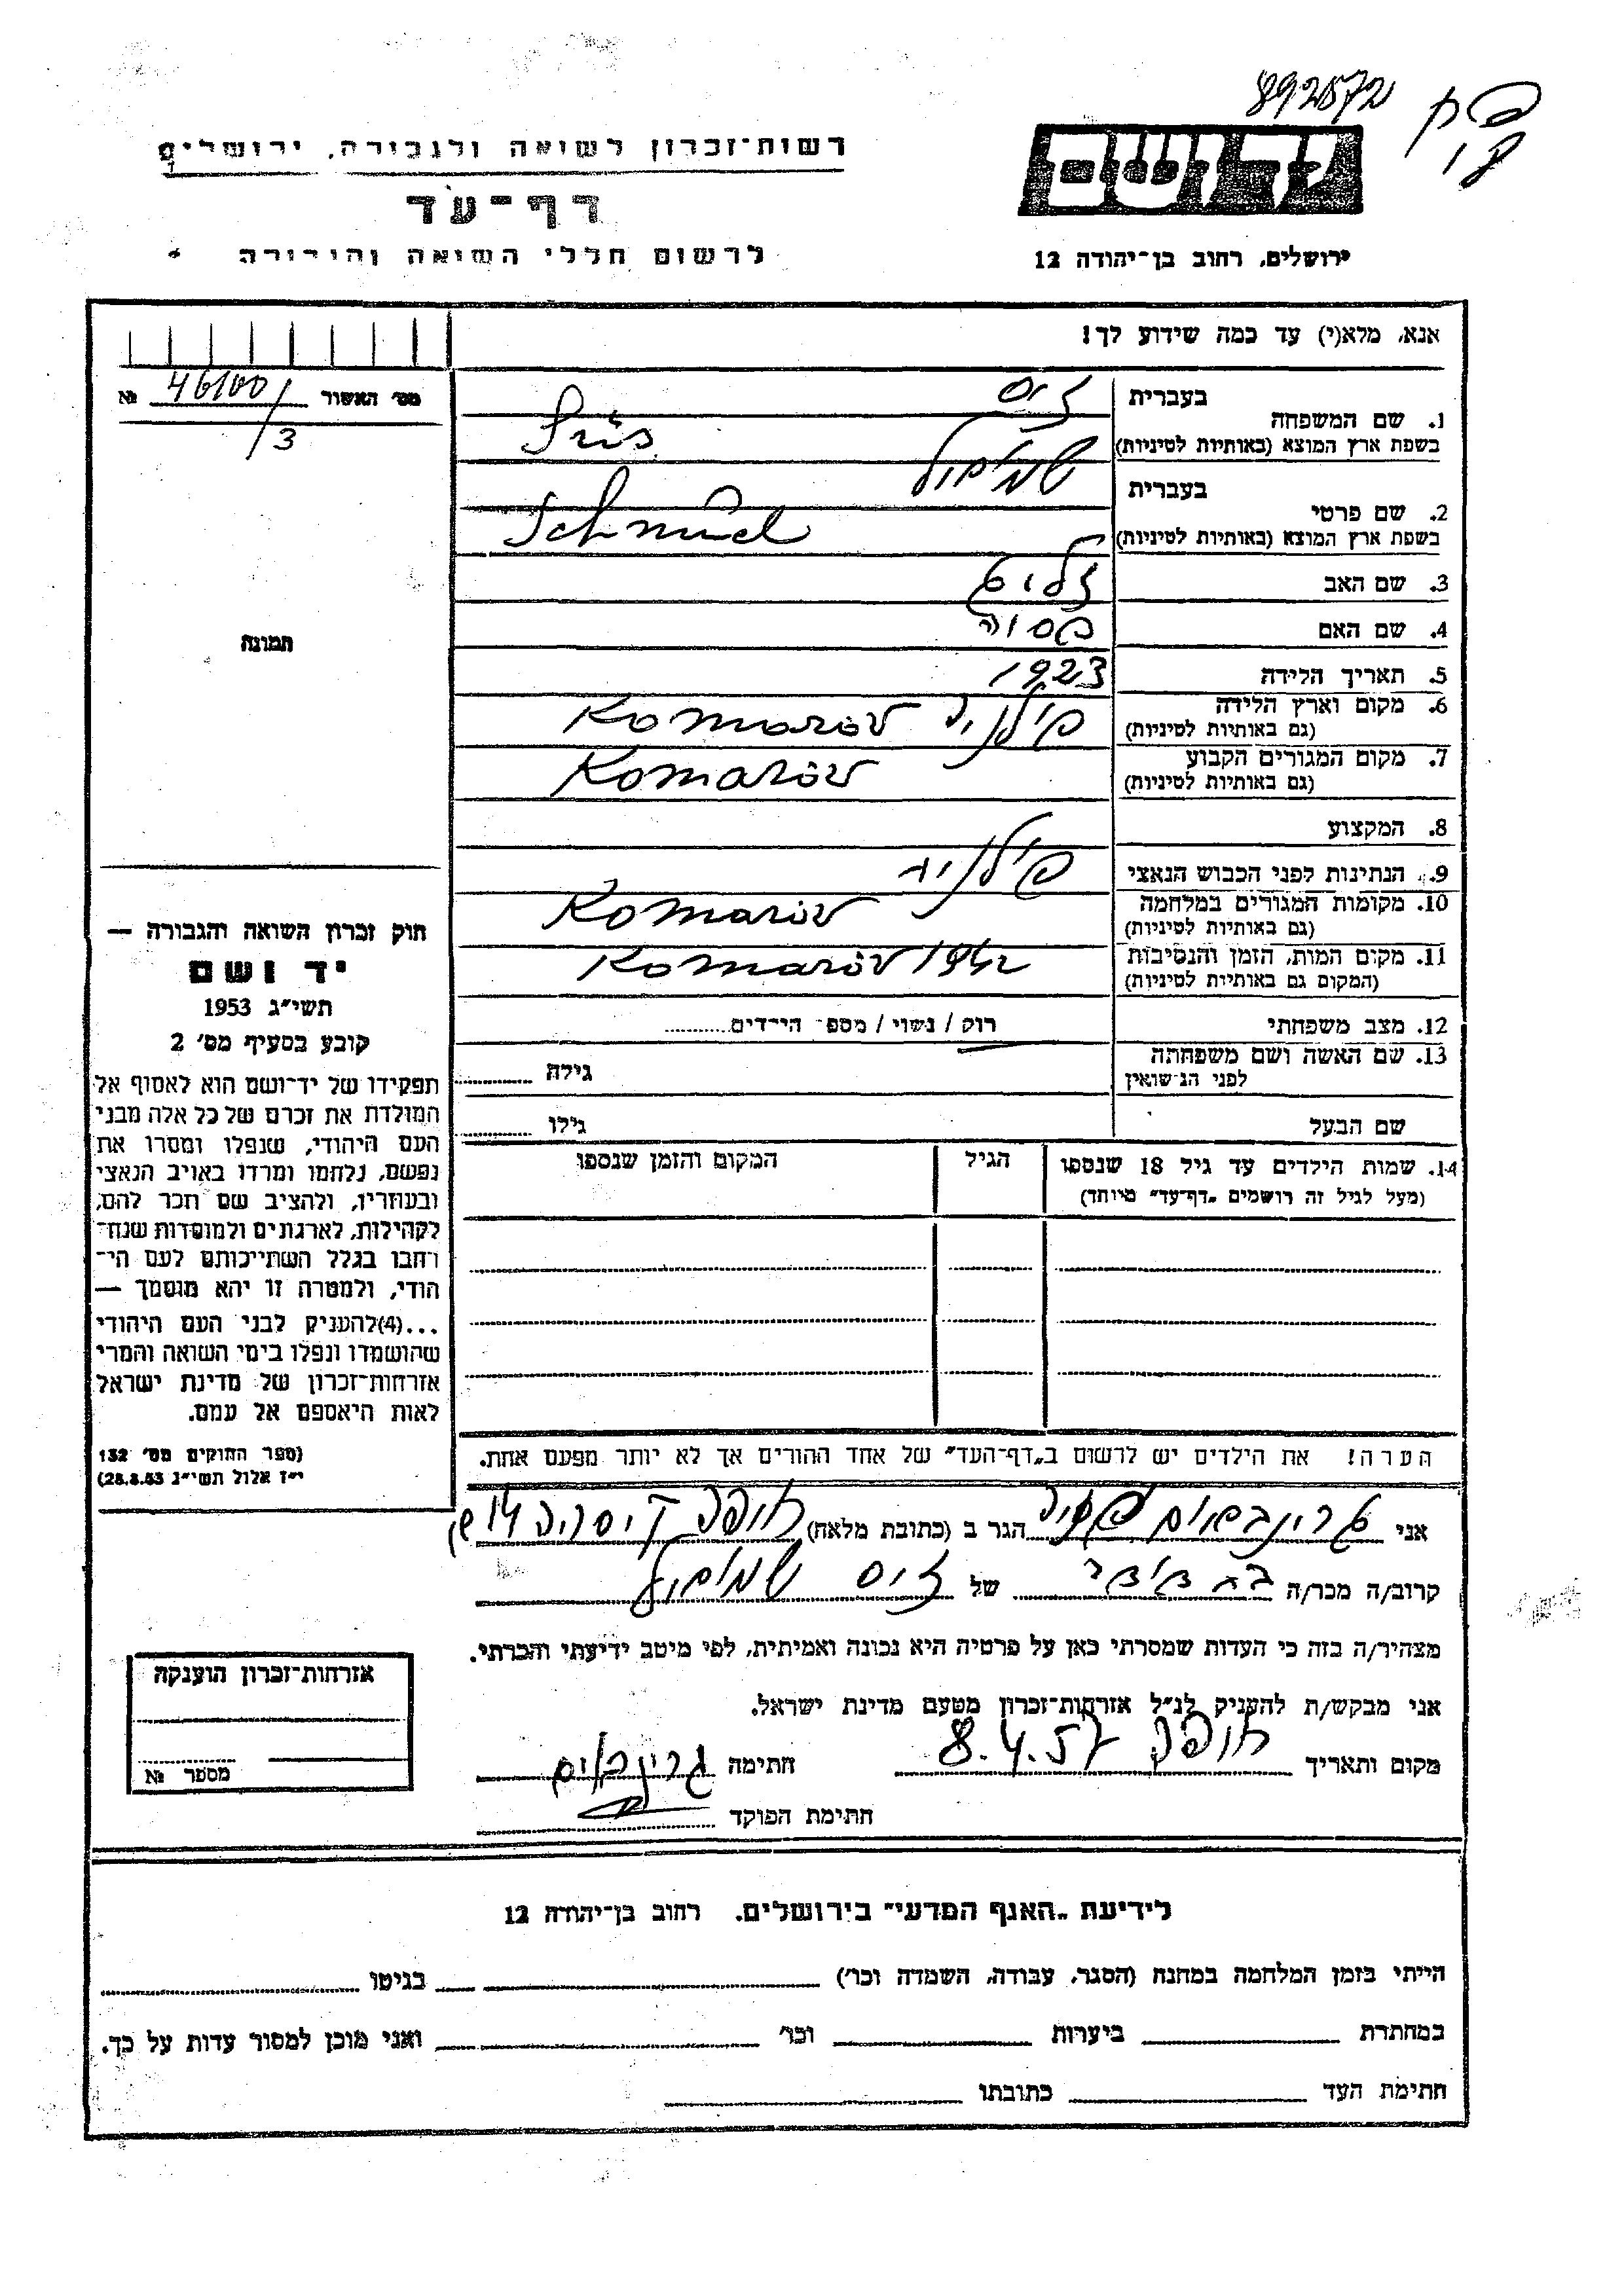 892572
רשות-זכרון לשואה ולגבורה, ירושלים
דף-עד
לרשום חללי השואה והגבורה
ידושם
ירושלים, רחוב בן-יהודה 12
אנא, מלא(י) עד כמה שידוע לך!
מס׳ האשור 46100/3 №
תמונה
חוק זכרון השואה והגבורה —
יד ושם
תשי״ג 1953
קובע בסעיף מס׳ 2
תפקידו של יד־ושם הוא לאסוף אל
המולדת את זכרם של כל אלה מבני
העם היהודי, שנפלו ומסרו את
נפשם, נלחמו ומרדו באויב הנאצי
ובעוזריו, ולהציב שם וזכר להם,
לקהילות, לארגונים ולמוסדות שנח־
רחבו בגלל השתייכותם לעם הי־
הודי, ולמטרה זו יהא מוסמך —
...(4)להעניק לבני העם היהודי
שהושמדו ונפלו בימי השואה והמרי
אזרחות־זכרון של מדינת ישראל
לאות היאספם אל עמם.
(ספר החוקים מס׳ 132
י״ז אלול תשי״ג 28.8.53)
1. שם המשפחה
בעברית
בשפת ארץ המוצא (באותיות לטיניות)
2. שם פרטי
בעברית שמואל
בשפת ארץ המוצא (באותיות לטיניות) Schmuel
3. שם האב
4. שם האם
5. תאריך הלידה 1923
6. מקום וארץ הלידה פולניה Komarów
(גם באותיות לטיניות)
7. מקום המגורים הקבוע Komarów
(גם באותיות לטיניות)
8. המקצוע
9. הנתינות לפני הכבוש הנאצי פולניה
10. מקומות המגורים במלחמה Komarów
(גם באותיות לטיניות)
11. מקום המות, הזמן והנסיבות Komarów 1942
(המקום גם באותיות לטיניות)
12. מצב משפחתי רוק / נשוי / מספ׳ הילדים
13. שם האשה ושם משפחתה
לפני הנישואין גילה
שם הבעל גילו
14. שמות הילדים עד גיל 18 שנספו הגיל המקום והזמן שנספו
(מעל לגיל זה רושמים „דף־עד״ מיוחד)
הערה! את הילדים יש לרשום ב„דף־העד״ של אחד ההורים אך לא יותר מפעם אחת.
אני גרינבוים הגר ב (כתובת מלאה) חיפה
קרוב/ה מכר/ה של שמואל
מצהיר/ה בזה כי העדות שמסרתי כאן על פרטיה היא נכונה ואמיתית, לפי מיטב ידיעתי והכרתי.
אני מבקש/ת להעניק לנ״ל אזרחות־זכרון מטעם מדינת ישראל.
מקום ותאריך חיפה 8.4.57 חתימה גרינבוים
חתימת הפוקד
אזרחות־זכרון הוענקה
מספר №
לידיעת „האגף המדעי״ בירושלים, רחוב בן־יהודה 12
הייתי בזמן המלחמה במחנה (הסגר, עבודה, השמדה וכו׳) בגיטו
במחתרת ביערות וכו׳ ואני מוכן למסור עדות על כך.
חתימת העד כתובתו